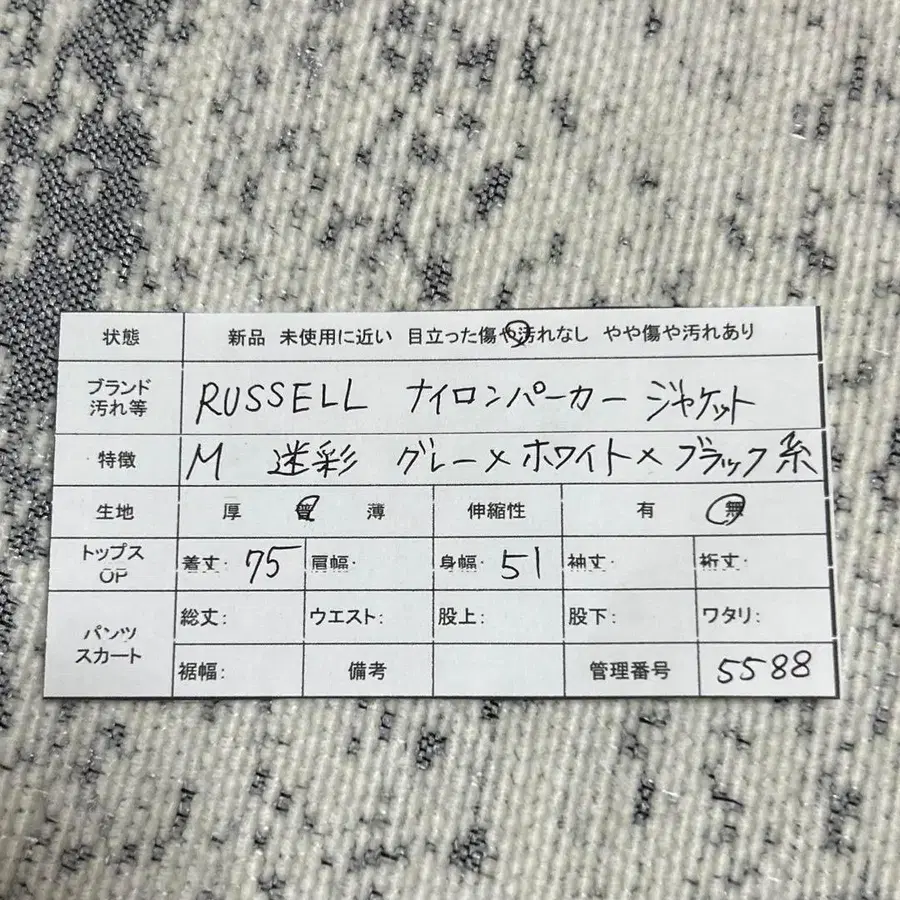 状態 新品 未使用に近い 目立った傷や汚れなし やや傷や汚れあり
ブランド 汚れ等 RUSSELL ナイロンパーカー ジャケット
特徴 M 迷彩 グレー×ホワイト×ブラック系
生地 厚 普 薄 伸縮性 有 無
トップス OP 着丈: 75 肩幅: 身幅: 51 袖丈: 裄丈:
パンツ スカート 総丈: ウエスト: 股上: 股下: ワタリ:
裾幅: 備考 管理番号 5588